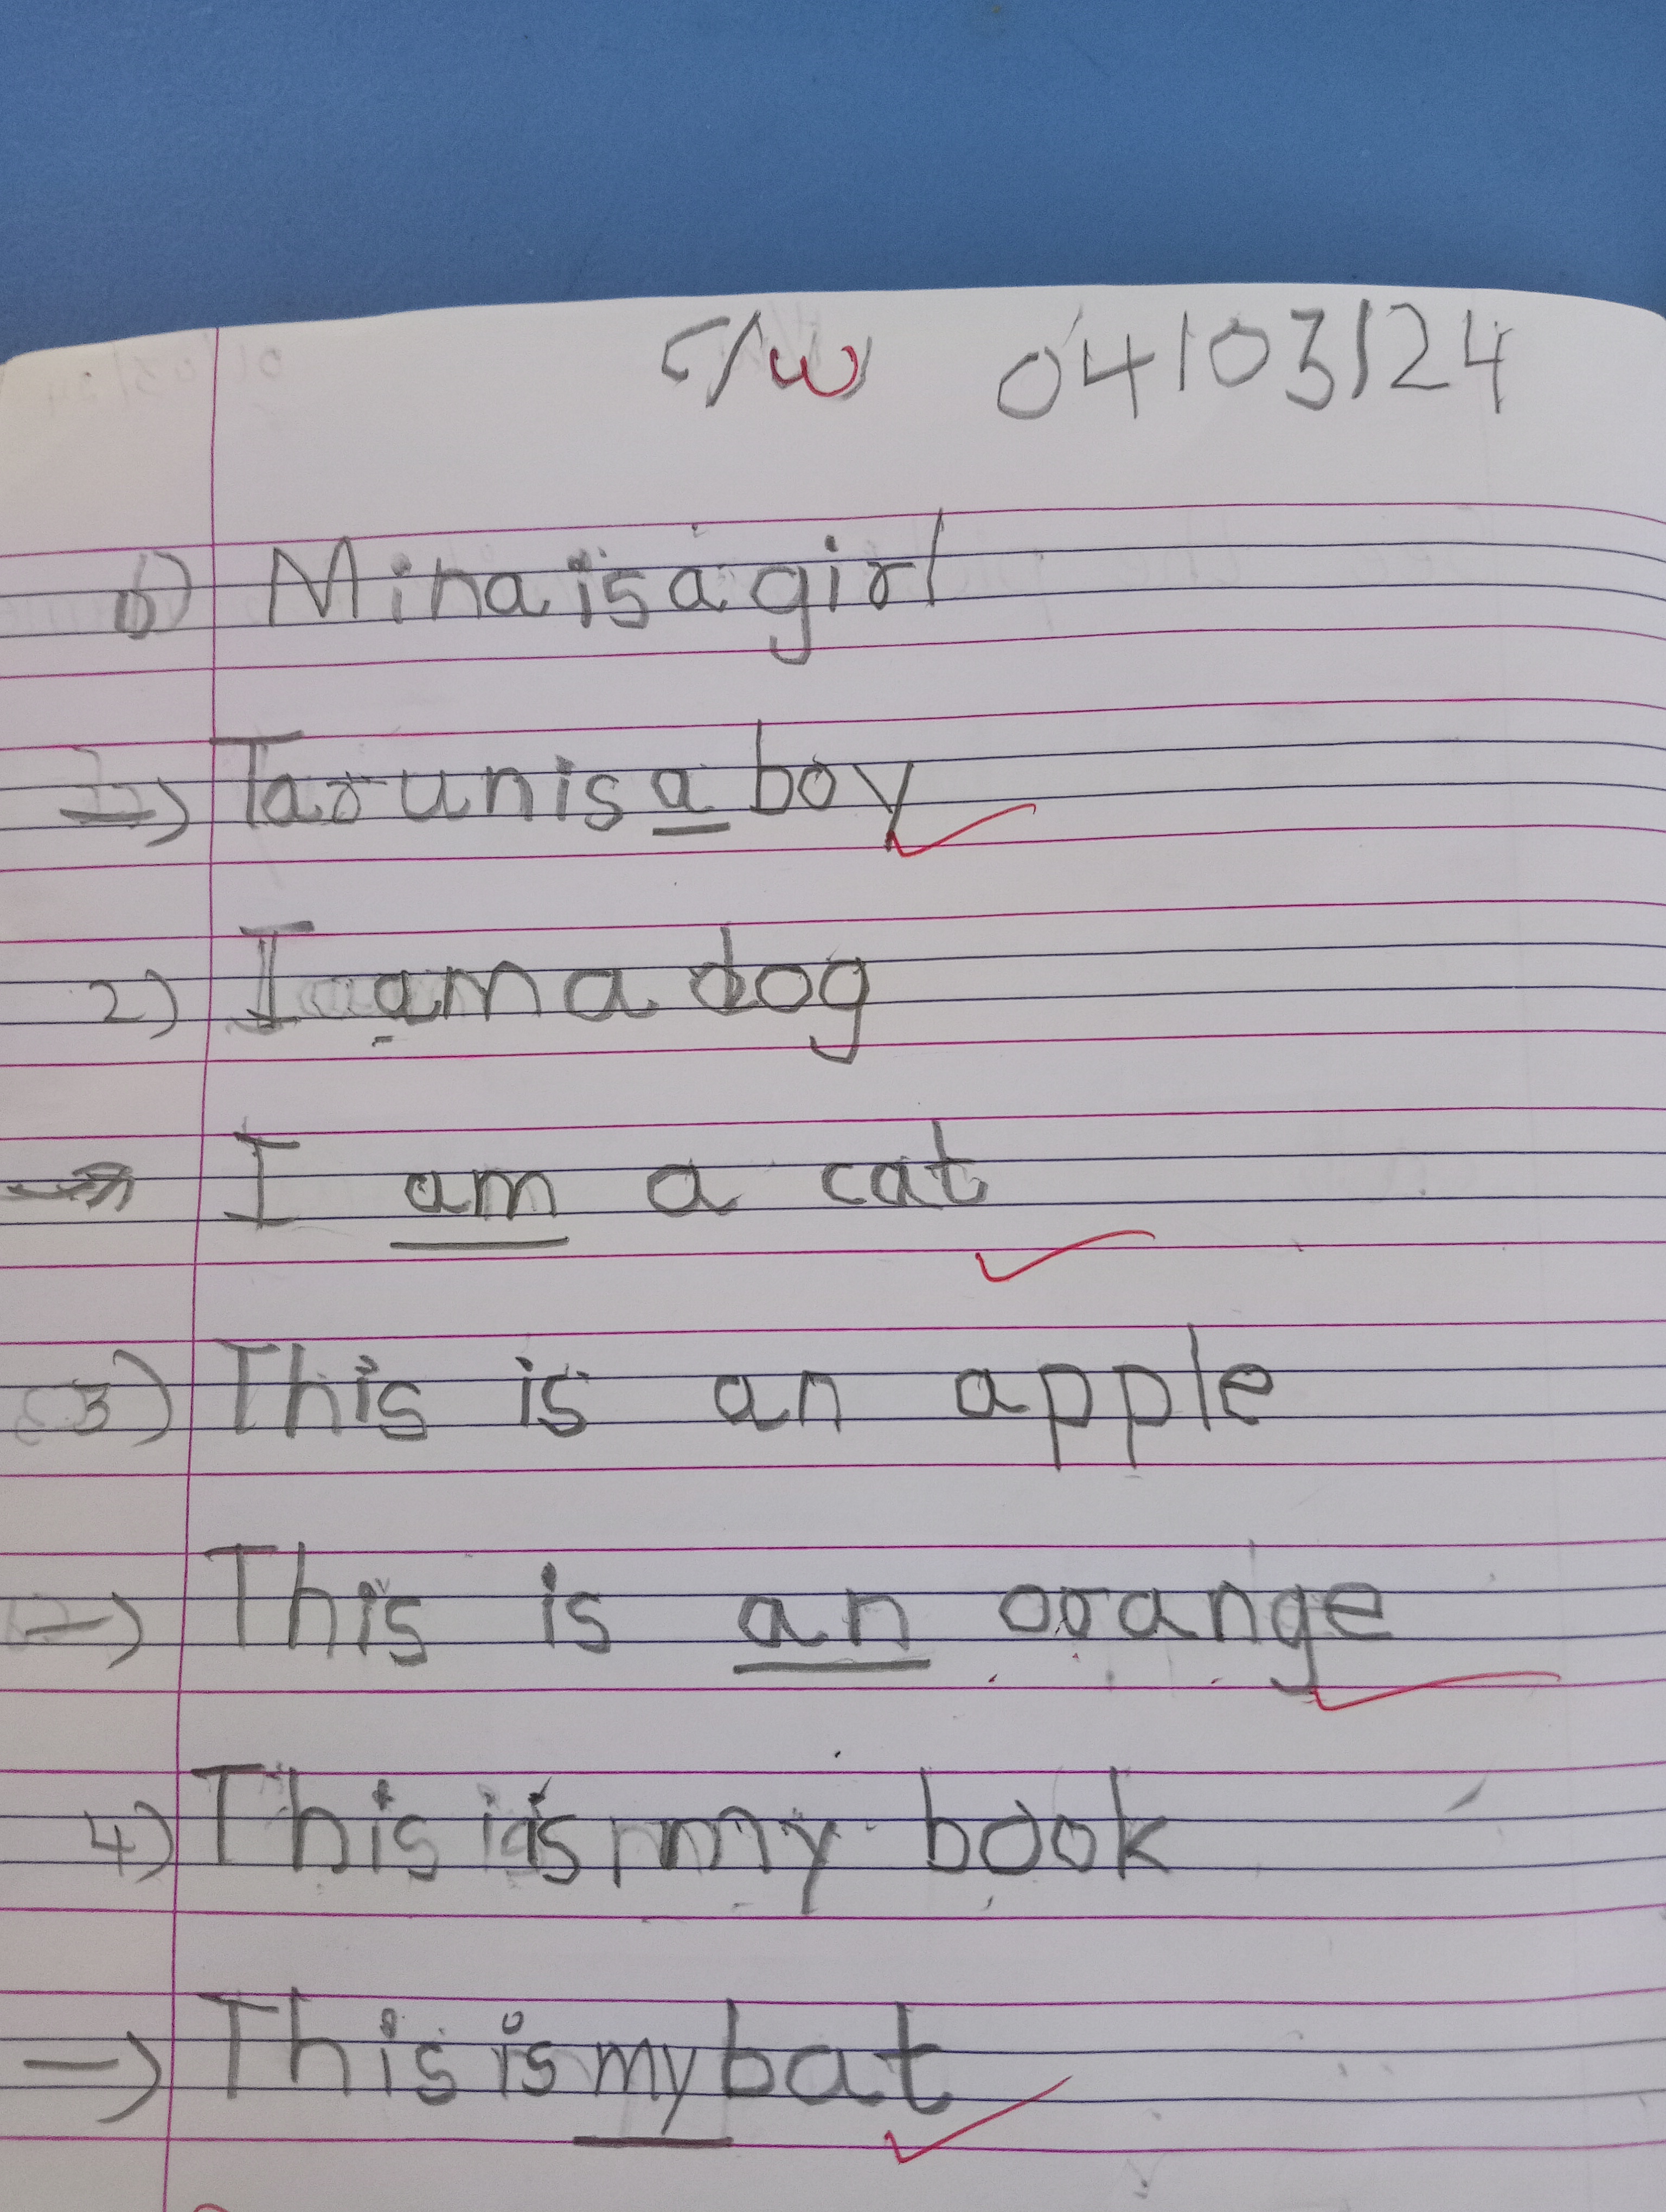 C/W 04/03/24
1) Mina is a girl
=> Tarun is a boy
2) I am a dog
=> I am a cat
3) This is an apple
=> This is an orange
4) This is my book
=> This is my bat